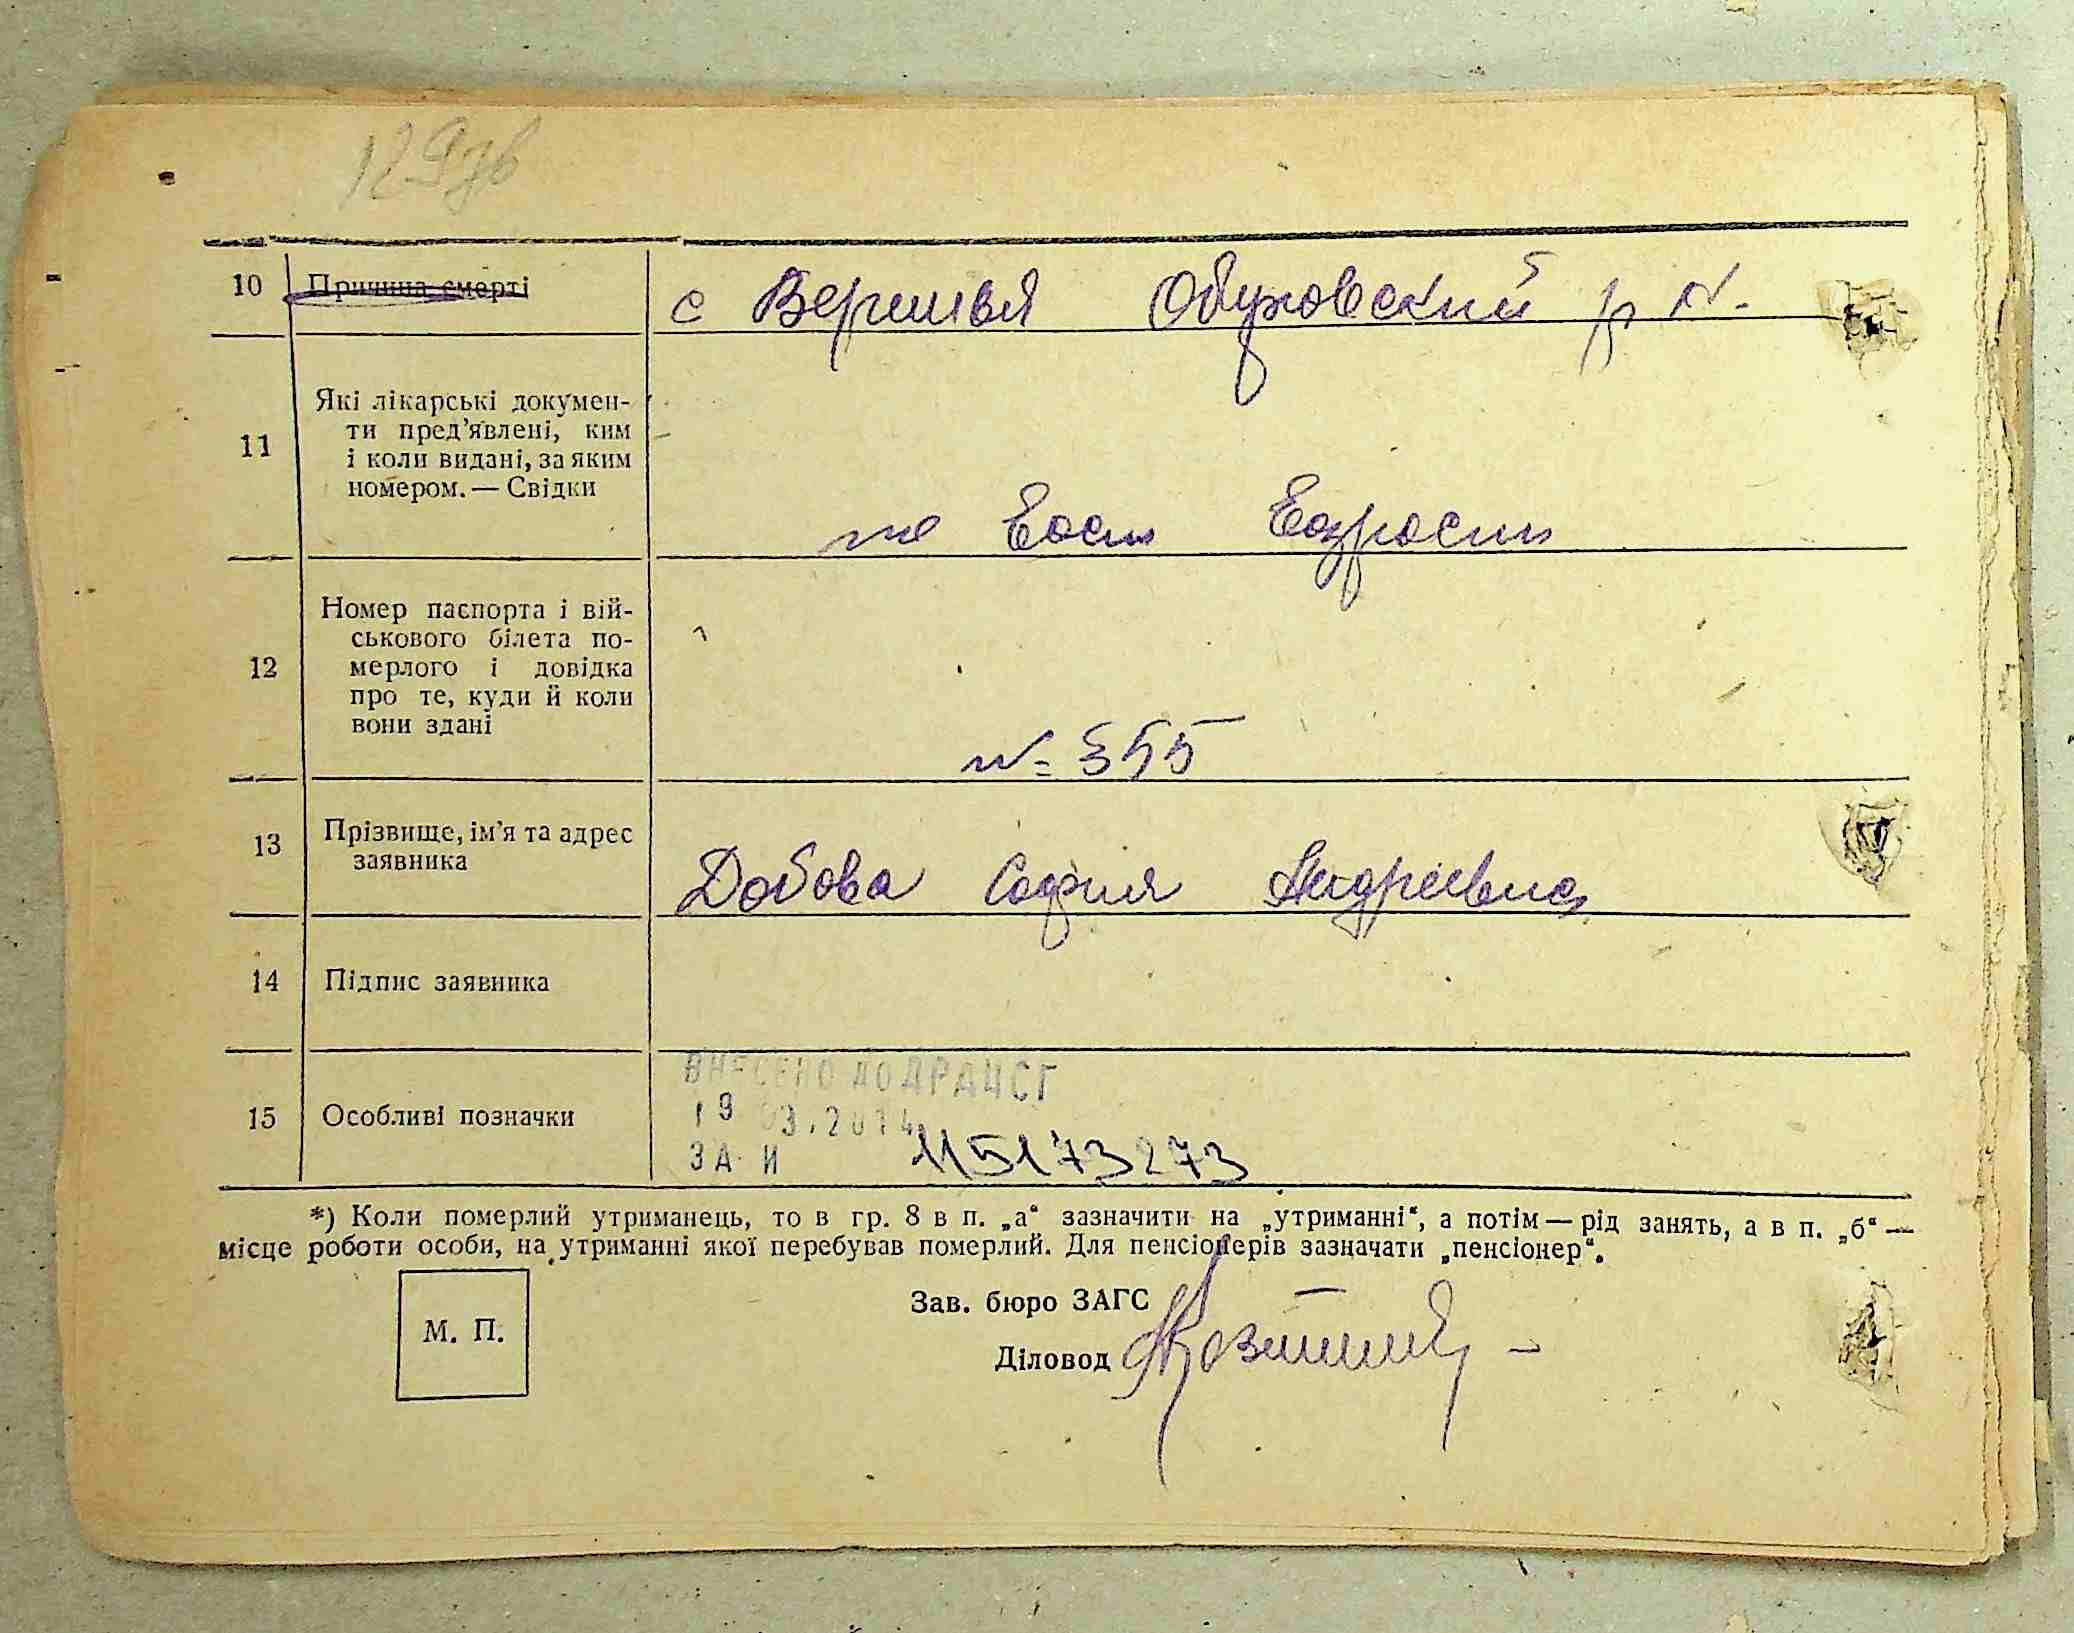 129зв
10 Причина смерті с Вершвя Обуховский р н.
11 Які лікарські докумен-
ти пред’явлені, ким
і коли видані, за яким
номером. — Свідки
12 Номер паспорта і вій-
ськового білета по-
мерлого і довідка
про те, куди й коли
вони здані
№ 355
13 Прізвище, ім’я та адрес
заявника
Добова София Андреевна
14 Підпис заявника
15 Особливі позначки
ВНЕСЕНО ДО ДРАЦСГ
19 03.2014
ЗА И 115173273
*) Коли померлий утриманець, то в гр. 8 в п. „а“ зазначити на „утриманні“, а потім — рід занять, а в п. „б“ —
місце роботи особи, на утриманні якої перебував померлий. Для пенсіонерів зазначати „пенсіонер“.
Зав. бюро ЗАГС
М. П.
Діловод